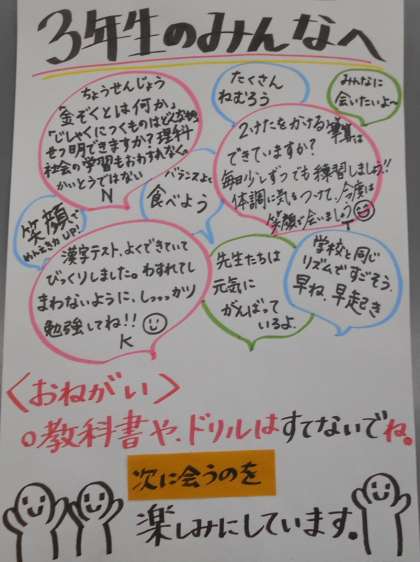 3年生のみんなへ
ちょうせんじょう
「金ぞくとは何か」
「じしゃくにつくものは
せつ明できますか?理科
社会の学習もおわすれなく。
かいとうではない
N
たくさん
ねむろう
みんなに
会いたいよ〜
2けたをかける筆算は
できていますか?
毎日少しずつでも練習しましよう!!
体調に気をつけて、今度は
笑顔で会いましょう
バランスよく
食べよう
笑顔で
めんえき力UP!
漢字テスト、よくできていて
びっくりしました。わすれてし
まわないように、しっっっかり
勉強してね!!
K
先生たちは
元気に
がんばって
いるよ。
学校と同じ
リズムですごそう。
早ね、早起き
<おねがい>
○教科書や、ドリルはすてないでね。
次に会うのを
楽しみにしています。